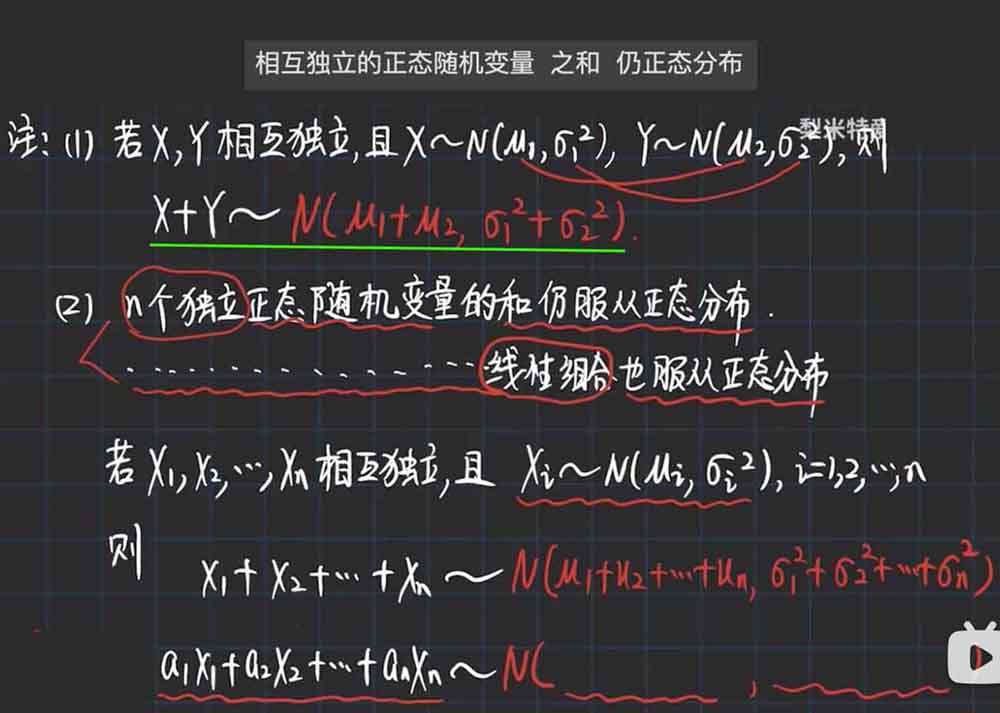 相互独立的正态随机变量 之和 仍正态分布
注: (1) 若X,Y相互独立,且X~N(μ₁,σ₁²), Y~N(μ₂,σ₂²),则
X+Y~N(μ₁+μ₂, σ₁²+σ₂²).
(2) n个独立正态随机变量的和仍服从正态分布.
···············线性组合也服从正态分布
若X₁,X₂,···,Xₙ相互独立,且 Xᵢ~N(μᵢ,σᵢ²), i=1,2,···,n
则
X₁+X₂+···+Xₙ~N(μ₁+μ₂+···+μₙ, σ₁²+σ₂²+···+σₙ²)
a₁X₁+a₂X₂+···+aₙXₙ~N( ,